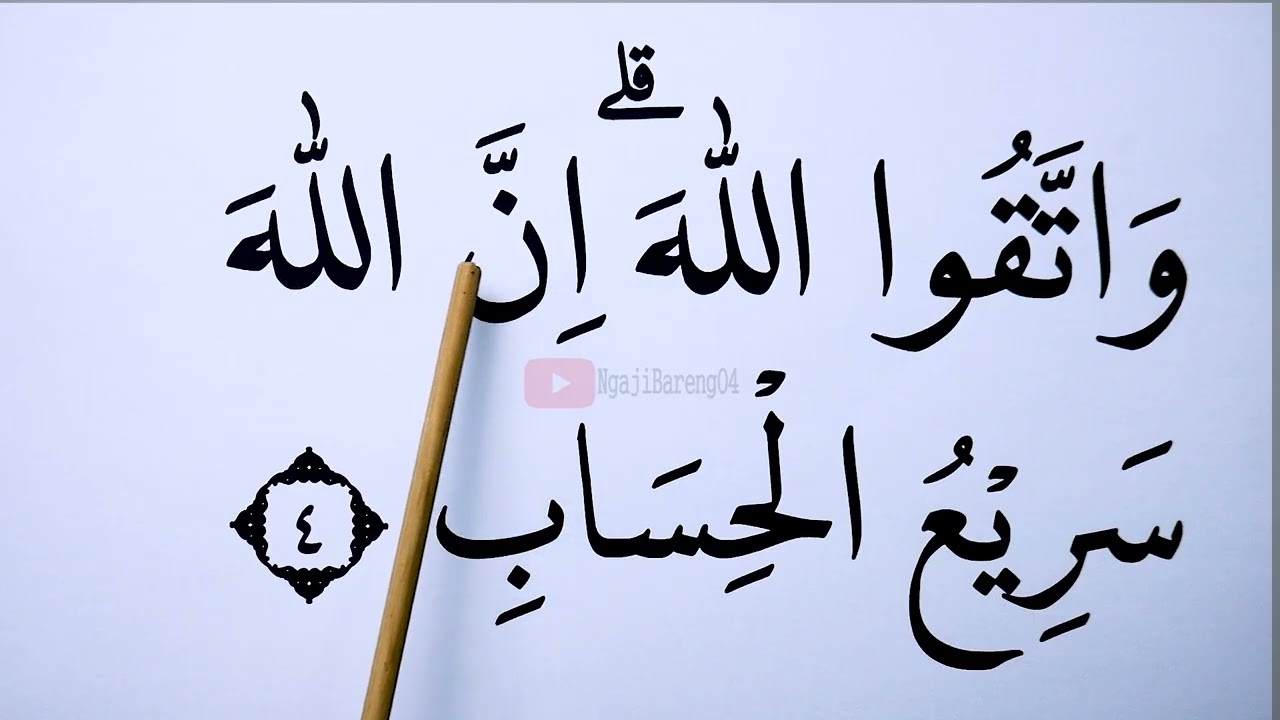 وَاتَّقُوا اللّٰهَ ۗاِنَّ اللّٰهَ
NgajiBareng04
سَرِيْعُ الْحِسَابِ ٤